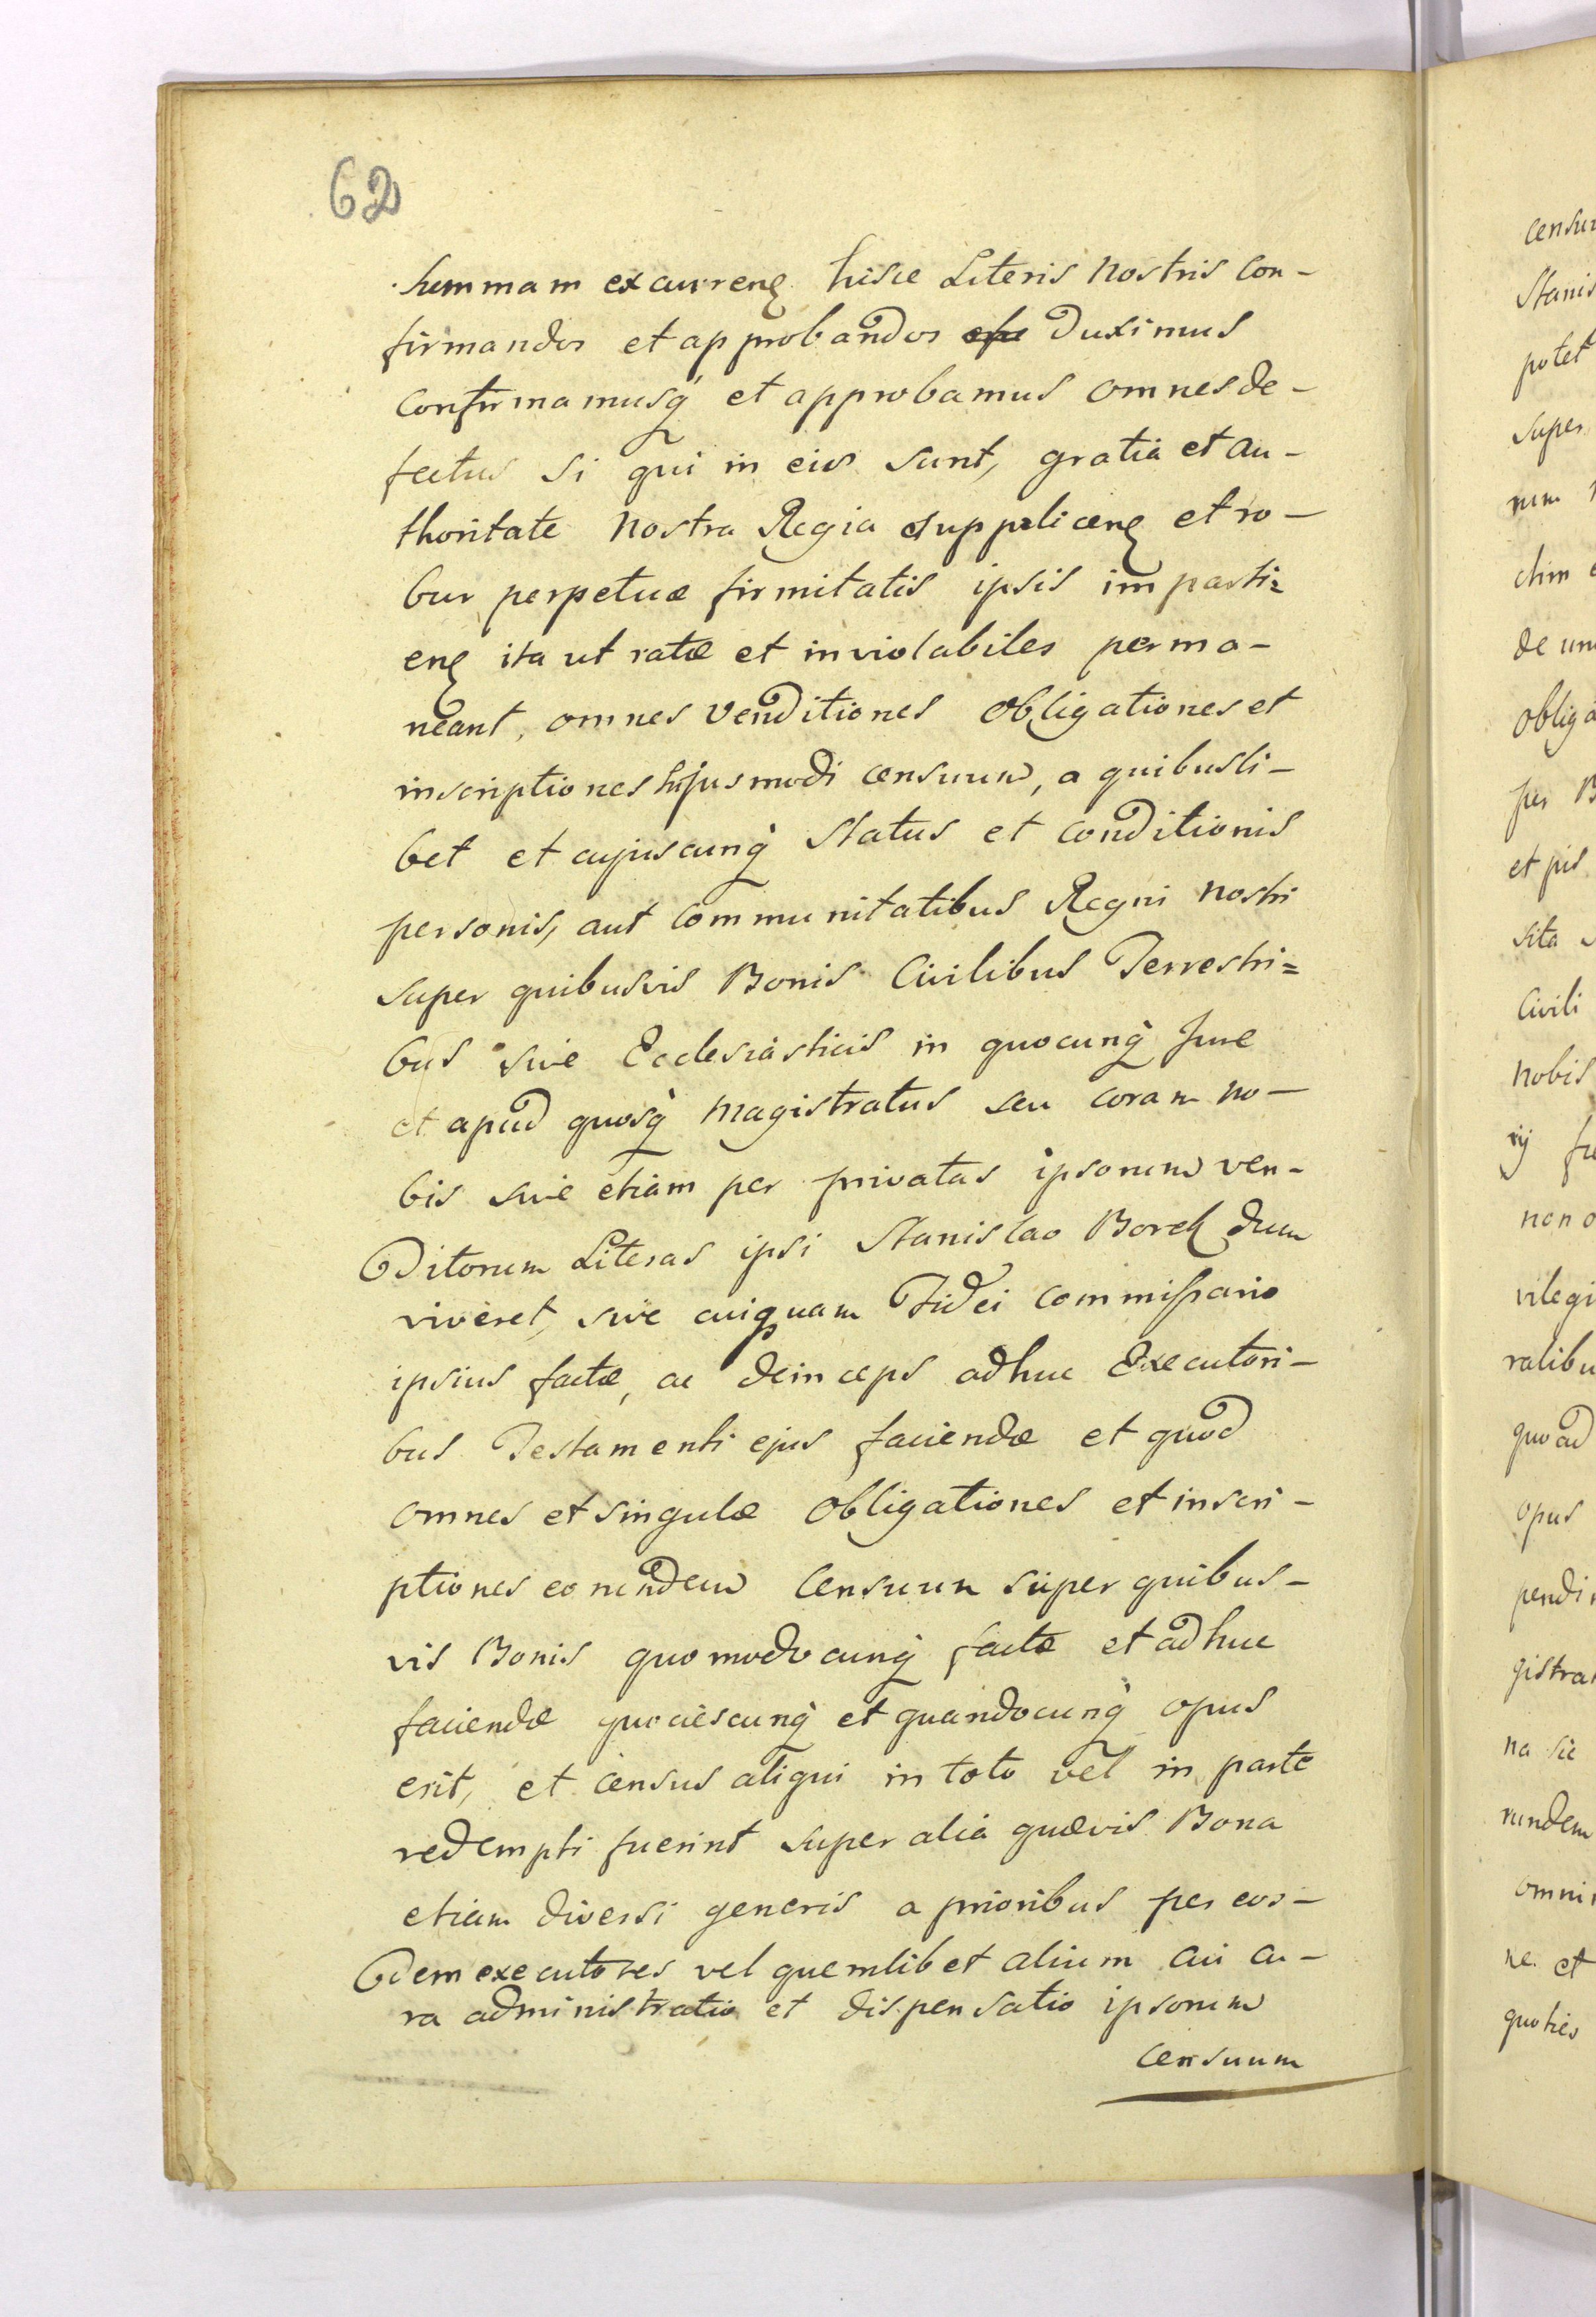 62
summam excurreñ hisce Literis Nostris con-
firmandos et approbandos esse duximus
confirmamusq́ et approbamus omnes de-
fectus si qui in eis sunt, gratia et au-
thoritate Nostra Regia suppliceñ et ro-
bur perpetuæ firmitatis ipsis imparti=
eñ ita ut ratæ et inviolabiles perma-
neant, omnes venditiones obligationes et
inscriptiones hujusmodi censuum, a quibusli-
bet et cujuscunq́ status et conditionis
personis, aut communitatibus Regni nostri
super quibusvis Bonis Civilibus Terrestri=
bus sive Ecclesiasticis in quocunq́ Jure
et apud quosq́ Magistratus seu coram no-
bis sive etiam per privatas ipsorum ven-
ditorum Literas ipsi Stanislao Borek dum
viveret, sive cuiquam Fidei commissario
ipsius factæ, ac deinceps adhuc Executori-
bus Testamenti ejus faciendæ et quod
omnes et singulæ obligationes et inscri-
ptiones eorundem Censuum super quibus-
vis Bonis quomodocunq́ factæ et adhuc
faciendæ quociescunq́ et quandocunq́ opus
erit, et census aliqui in toto vel in parte
redempti fuerint super alia quævis Bona
etiam diversi generis a prioribus per eos-
dem executores vel quemlibet alium cui cu-
ra administratio et dispensatio ipsorum
censuum
censu
Stanis
potet
super
num
de un
obliga
per B
et pis
sita
Civili
nobis
non o
vilegi
ralibu
quoad
opus
pendi
gistra
na sic
rundem
omni
ne et
quoties